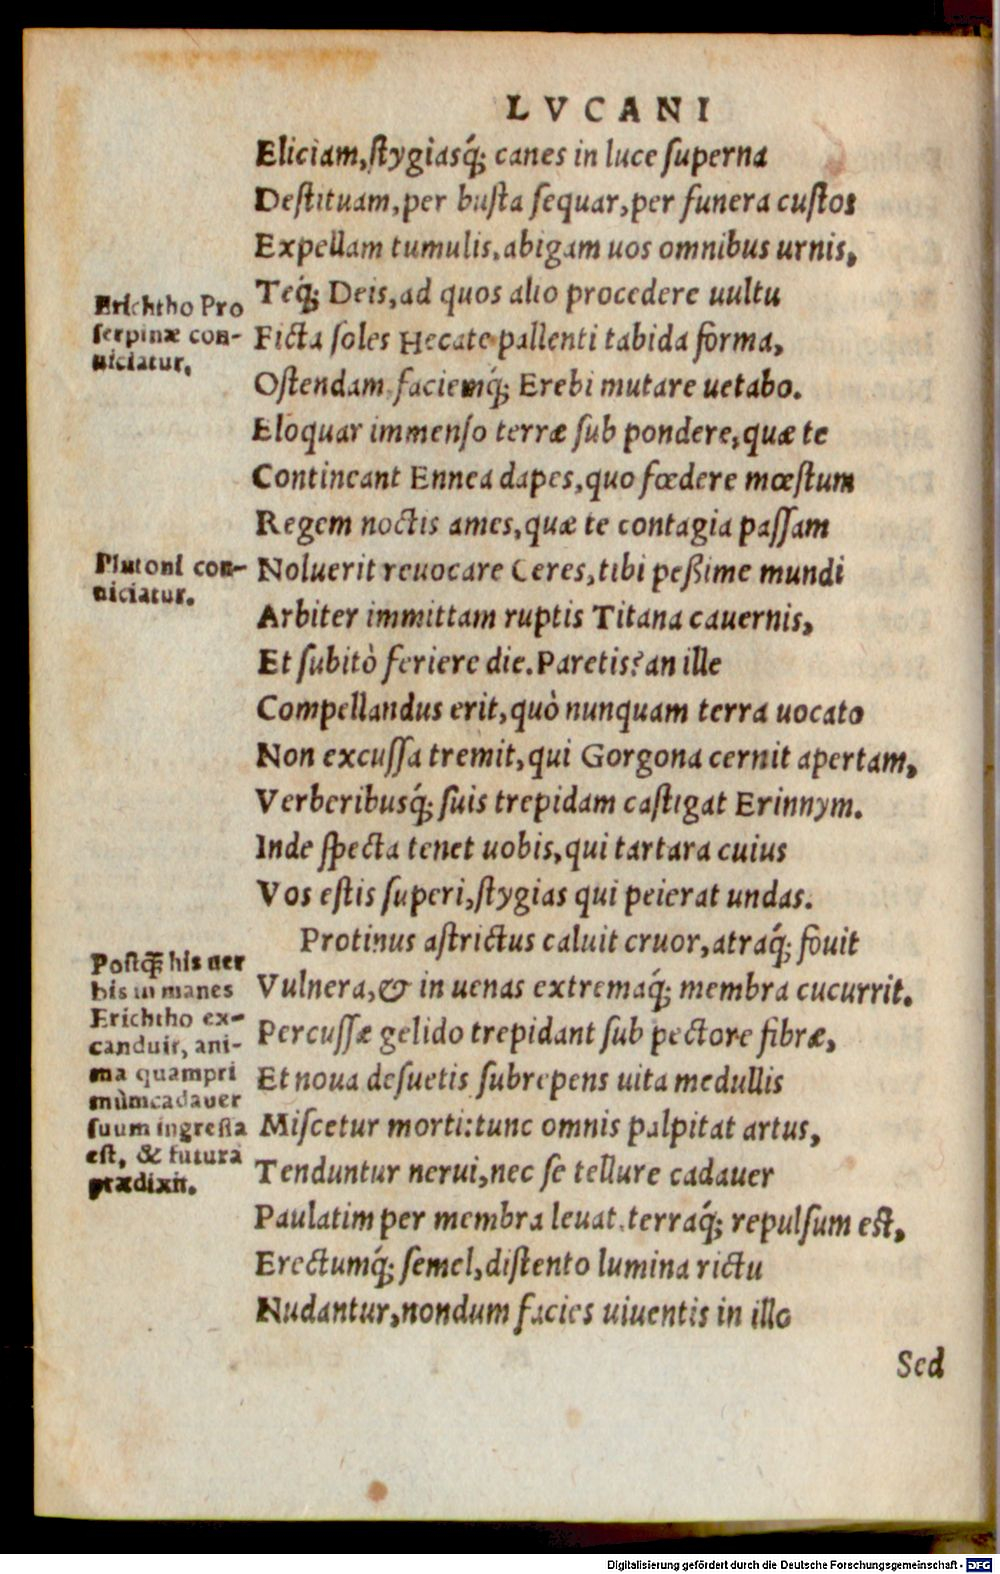 LVCANI
Eliciam, stygiasq́; canes in luce superna
Destituam, per busta sequar, per funera custos
Expellam tumulis, abigam uos omnibus urnis,
Teq́; Deis, ad quos alio procedere uultu
Erichtho Pro
serpinæ con-
uiciatur.
Ficta soles Hecate pallenti tabida forma,
Ostendam, faciemq́; Erebi mutare uetabo.
Eloquar immenso terræ sub pondere, quæ te
Contineant Ennea dapes, quo fœdere mœstum
Regem noctis ames, quæ te contagia passam
Plutoni con-
uiciatur.
Noluerit reuocare Ceres, tibi peßime mundi
Arbiter immittam ruptis Titana cauernis,
Et subitò feriere die. Paretis? an ille
Compellandus erit, quò nunquam terra uocato
Non excussa tremit, qui Gorgona cernit apertam,
Verberibusq́; suis trepidam castigat Erinnym.
Inde specta tenet uobis, qui tartara cuius
Vos estis superi, stygias qui peierat undas.
Protinus astrictus caluit cruor, atraq́; fouit
Postq̃ his uer
bis in manes
Erichtho ex-
canduit, ani-
ma quampri
mùm cadauer
suum ingressa
est, & futura
prædixit.
Vulnera, & in uenas extremaq́; membra cucurrit.
Percussæ gelido trepidant sub pectore fibræ,
Et noua desuetis subrepens uita medullis
Miscetur morti: tunc omnis palpitat artus,
Tenduntur nerui, nec se tellure cadauer
Paulatim per membra leuat, terraq́; repulsum est,
Erectumq́; semel, distento lumina rictu
Nudantur, nondum facies uiuentis in illo
Sed
Digitalisierung gefördert durch die Deutsche Forschungsgemeinschaft - DFG